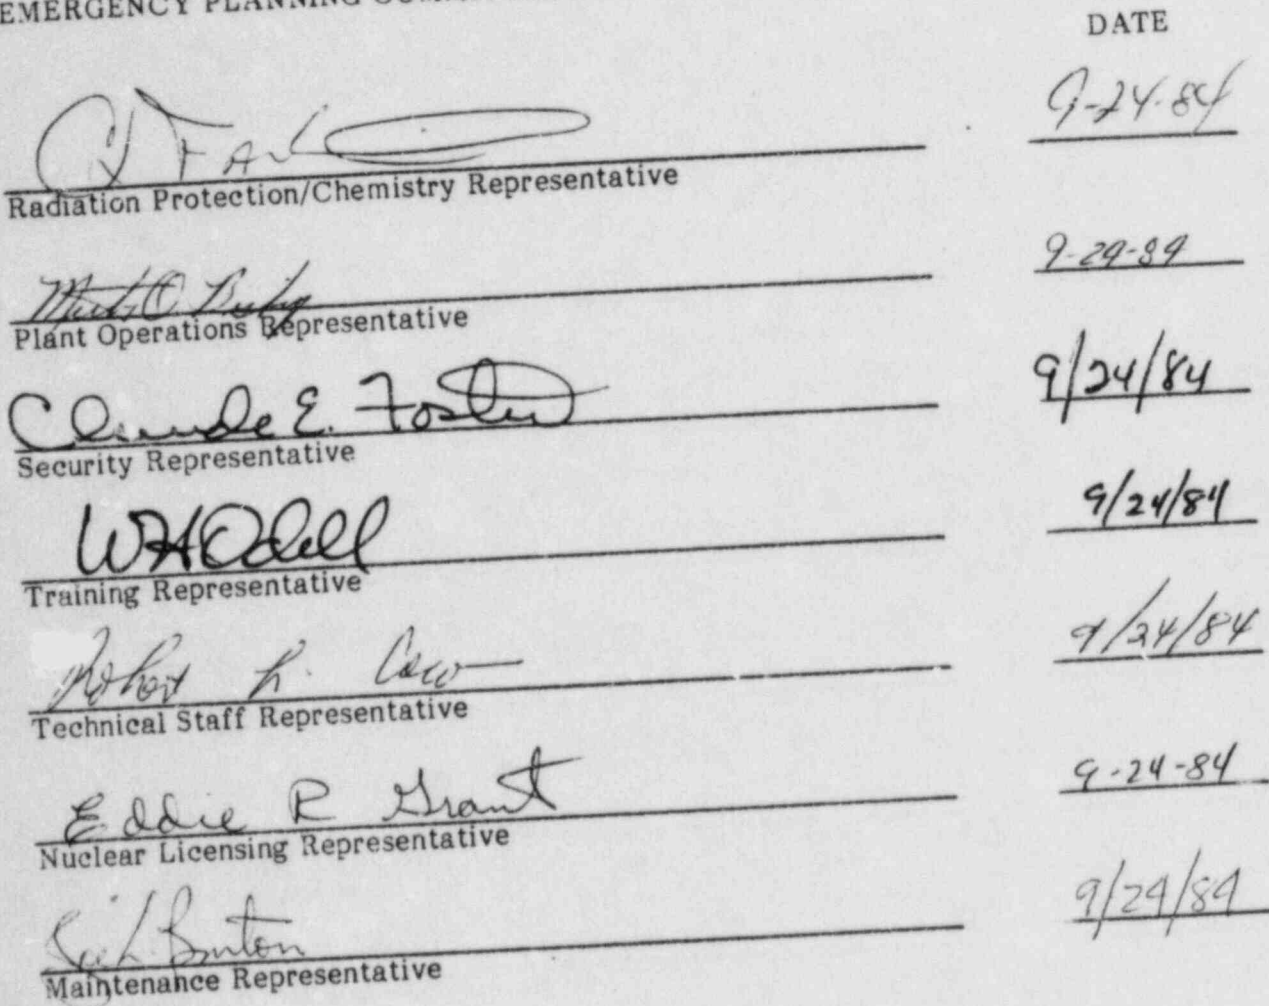 EMERGENCY PLANNING
DATE
9-24-84
Radiation Protection/Chemistry Representative
9-24-84
Plant Operations Representative
Claude E. Foster 9/24/84
Security Representative
W H Odell 9/24/84
Training Representative
Robert L. 9/24/84
Technical Staff Representative
Eddie R Grant 9-24-84
Nuclear Licensing Representative
Burton 9/24/84
Maintenance Representative